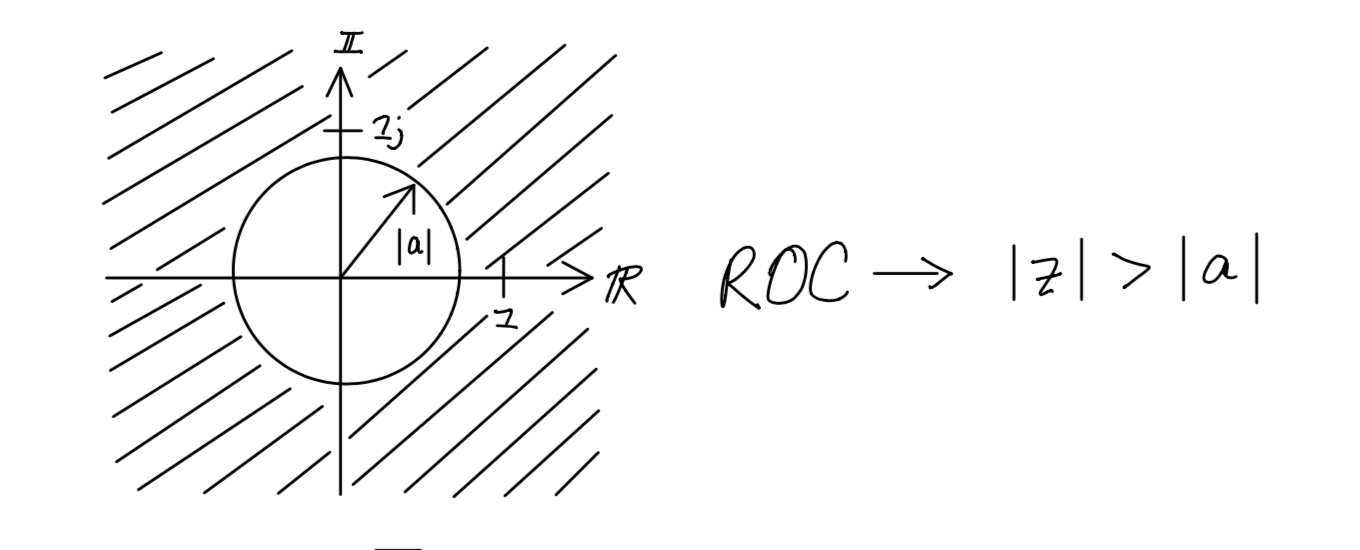 II
1j
|a|
ℝ
1
ROC → |z| > |a|